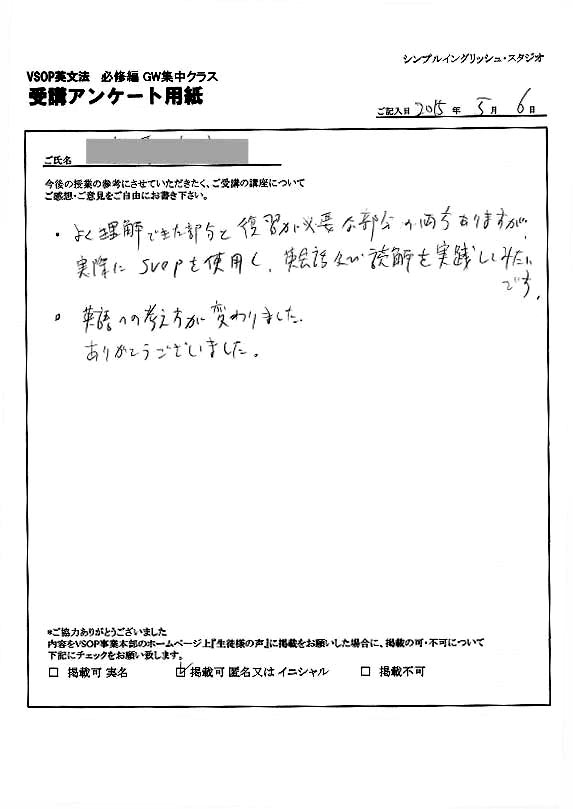 シンプルイングリッシュ・スタジオ
VSOP英文法 必修編 GW集中クラス
受講アンケート用紙
ご記入日 2015 年 5 月 6 日
ご氏名
今後の授業の参考にさせていただきたく、ご受講の講座について
ご感想・ご意見をご自由にお書き下さい。
・よく理解できた部分と復習が必要な部分の両方ありますが、
実際にSVOPを使用し、英会話及び読解を実践してみたい
です。
・英語への考え方が変わりました。
ありがとうございました。
*ご協力ありがとうございました
内容をVSOP事業本部のホームページ上『生徒様の声』に掲載をお願いした場合に、掲載の可・不可について
下記にチェックをお願い致します。
☐ 掲載可 実名 ☑ 掲載可 匿名又は イニシャル ☐ 掲載不可